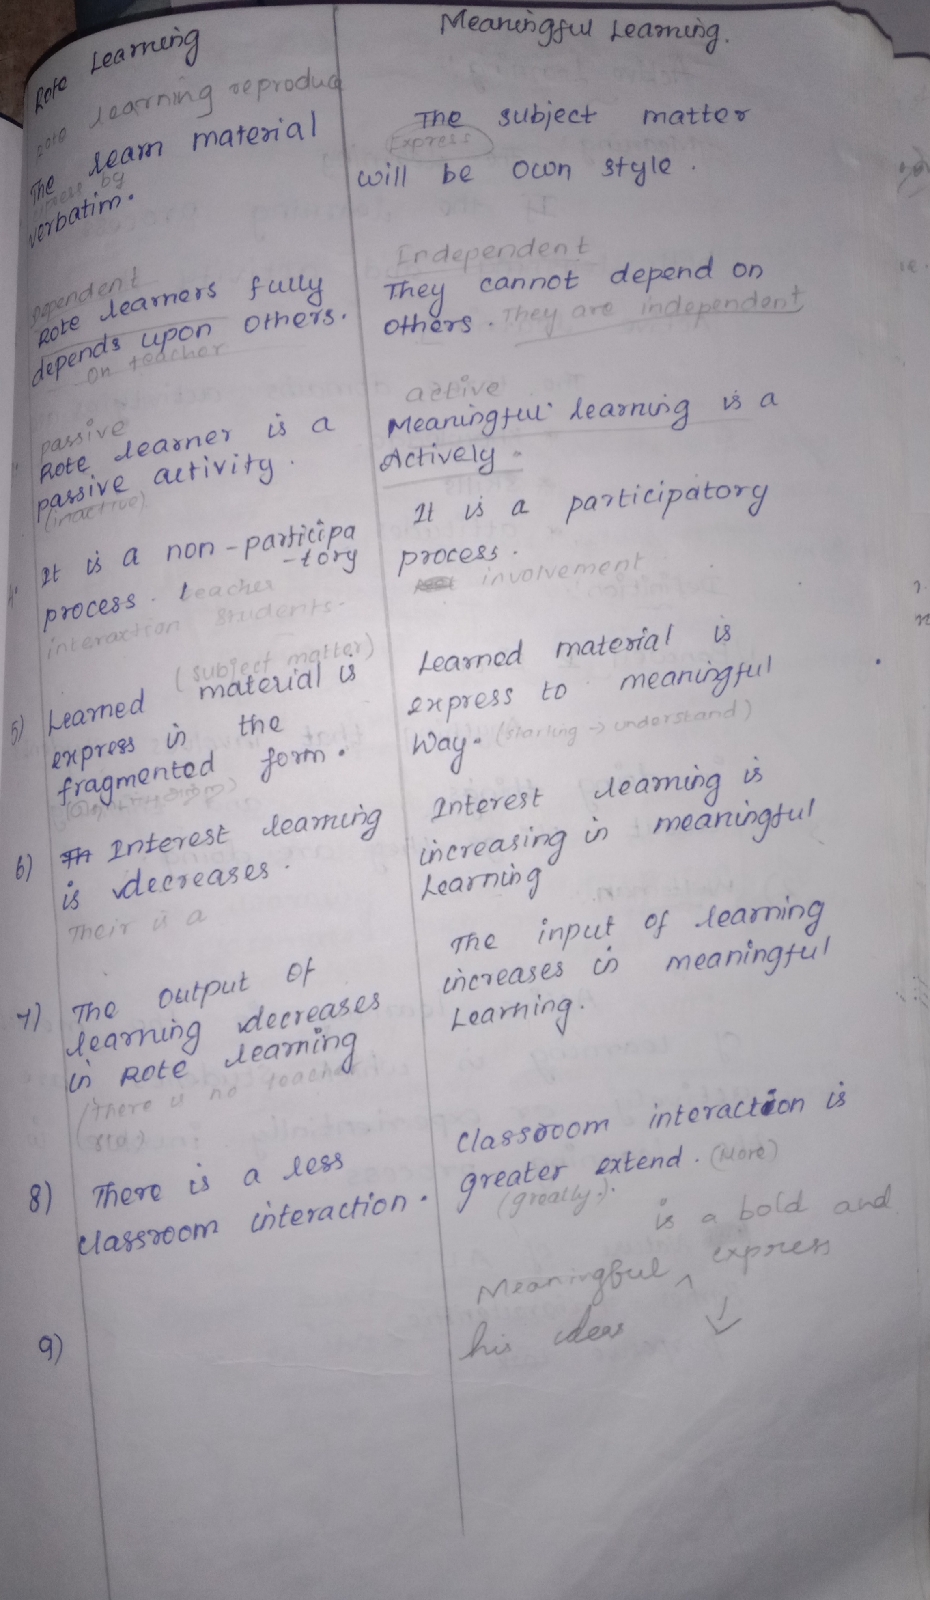 Rote Learning
rote learning reproduc
The learn material
by
verbatim.
Dependent
Rote learners fully
depends upon others.
on teacher
passive
Rote learner is a
passive activity.
(inactive)
4. It is a non-participa
-tory
process. teacher
interaction students.
(subject matter)
5) Learned material is
express in the
fragmented form.
6) Interest learning
is decreases.
Their is a
7) The output of
learning decreases
in Rote learning
(There is no teacher
8) There is a less
classroom interaction.
9)
Meaningful Learning.
The subject matter
Express
will be own style.
Independent
They cannot depend on
others. They are independent
active
Meaningful learning is a
Actively.
It is a participatory
process.
involvement
Learned material is
express to meaningful
way. (starling -> understand)
Interest learning is
increasing in meaningful
Learning
The input of learning
increases in meaningful
Learning.
Classroom interaction is
greater extend. (More)
(greatly).
is a bold and
Meaningful ^ express
his ideas